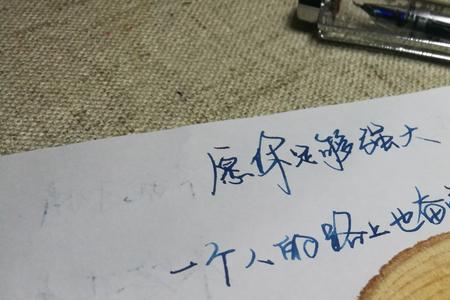 愿你足够强大
一个人的路上也奋